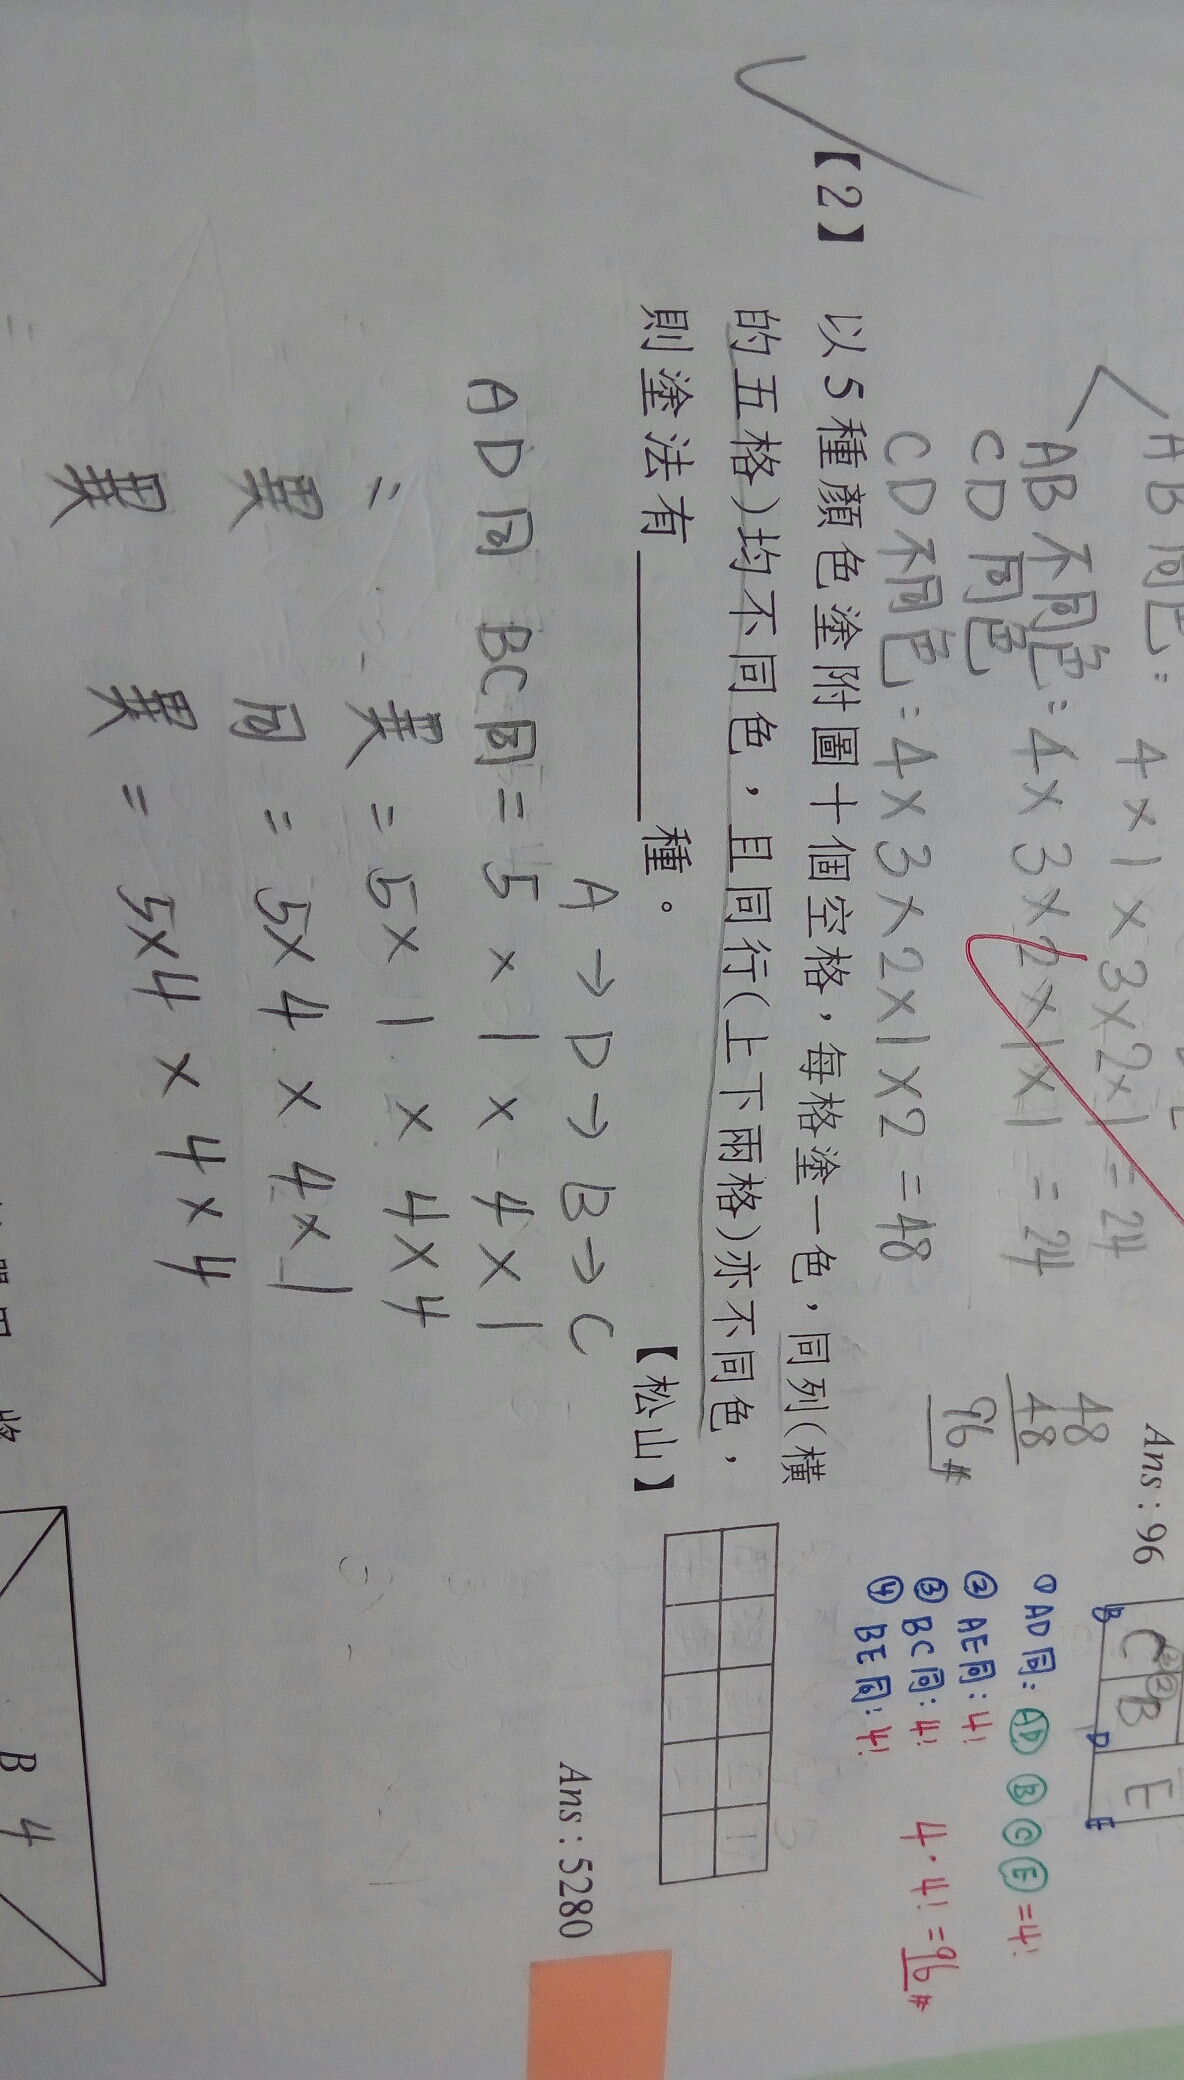 AB同色：4×1×3×2×1=24
AB不同色：4×3×2×1×1=24
CD同色
CD不同色：4×3×2×1×2=48
48
48
96#
Ans：96
C B E
B D E
①AD同：AD B C E =4!
②AE同：4!
③BC同：4!
④BE同：4!
4·4!=96#
【2】 以5種顏色塗附圖十個空格，每格塗一色，同列(橫
的五格)均不同色，且同行(上下兩格)亦不同色，
則塗法有 種。
【松山】
Ans：5280
A→D→B→C
AD同 BC同=5×1×4×1
〃 異=5×1×4×4
異 同=5×4×4×1
異 異=5×4×4×4
B 4